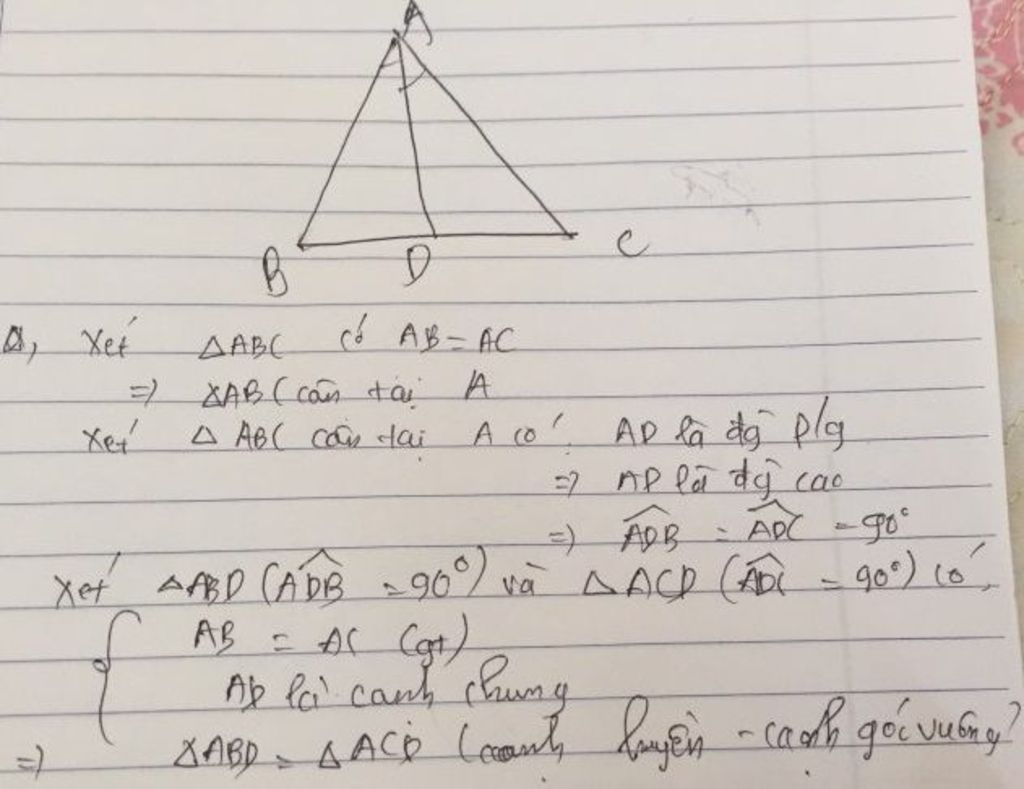 A
B D C
a, Xét ΔABC có AB = AC
=> ΔABC cân tại A
Xét Δ ABC cân tại A có: AD là đg p/g
=> AD là đg cao
=> ADB = ADC = 90°
Xét ΔABD (ADB = 90°) và ΔACD (ADC = 90°) có,
AB = AC (gt)
AD là cạnh chung
=> ΔABD = ΔACD (cạnh huyền - cạnh góc vuông)